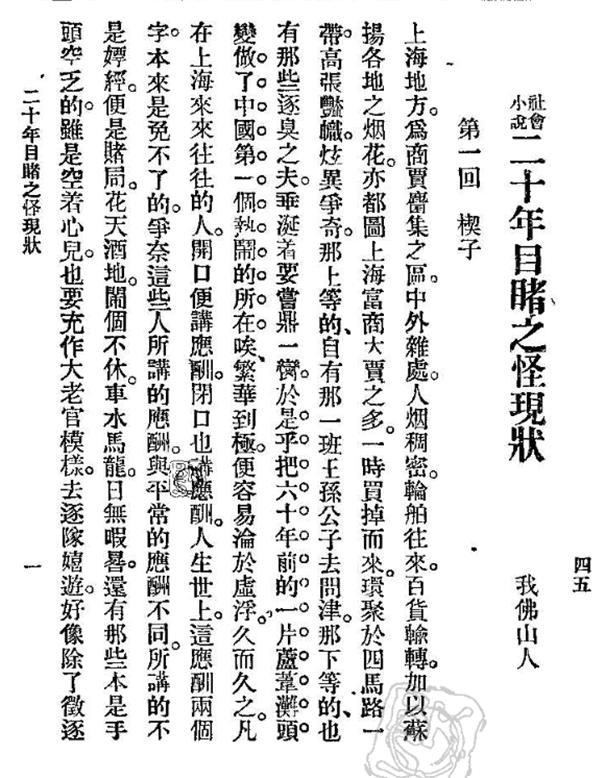 四五
社會小說 二十年目睹之怪現狀 我佛山人
第一回 楔子
上海地方。爲商賈麕集之區。中外雜處。人烟稠密。輪舶往來。百貨輸轉。加以蘇
揚各地之烟花。亦都圖上海富商大賈之多。一時買掉而來。環聚於四馬路一
帶。高張豔幟。炫異爭奇。那上等的、自有那一班王孫公子去問津。那下等的、也
有那些逐臭之夫。垂涎着要嘗鼎一臠。於是乎把六十年前的一片蘆葦灘頭
變做了中國第一個熱鬧的所在。唉、繁華到極。便容易淪於虛浮。久而久之。凡
在上海來來往往的人。開口便講應酬。閉口也講應酬。人生世上。這應酬兩個
字。本來是免不了的。爭奈這些人所講的應酬。與平常的應酬不同。所講的不
是嫖經。便是賭局。花天酒地。鬧個不休。車水馬龍。日無暇晷。還有那些本是手
頭空乏的。雖是空着心兒。也要充作大老官模樣。去逐隊嬉遊。好像除了徵逐
二十年目睹之怪現狀 一